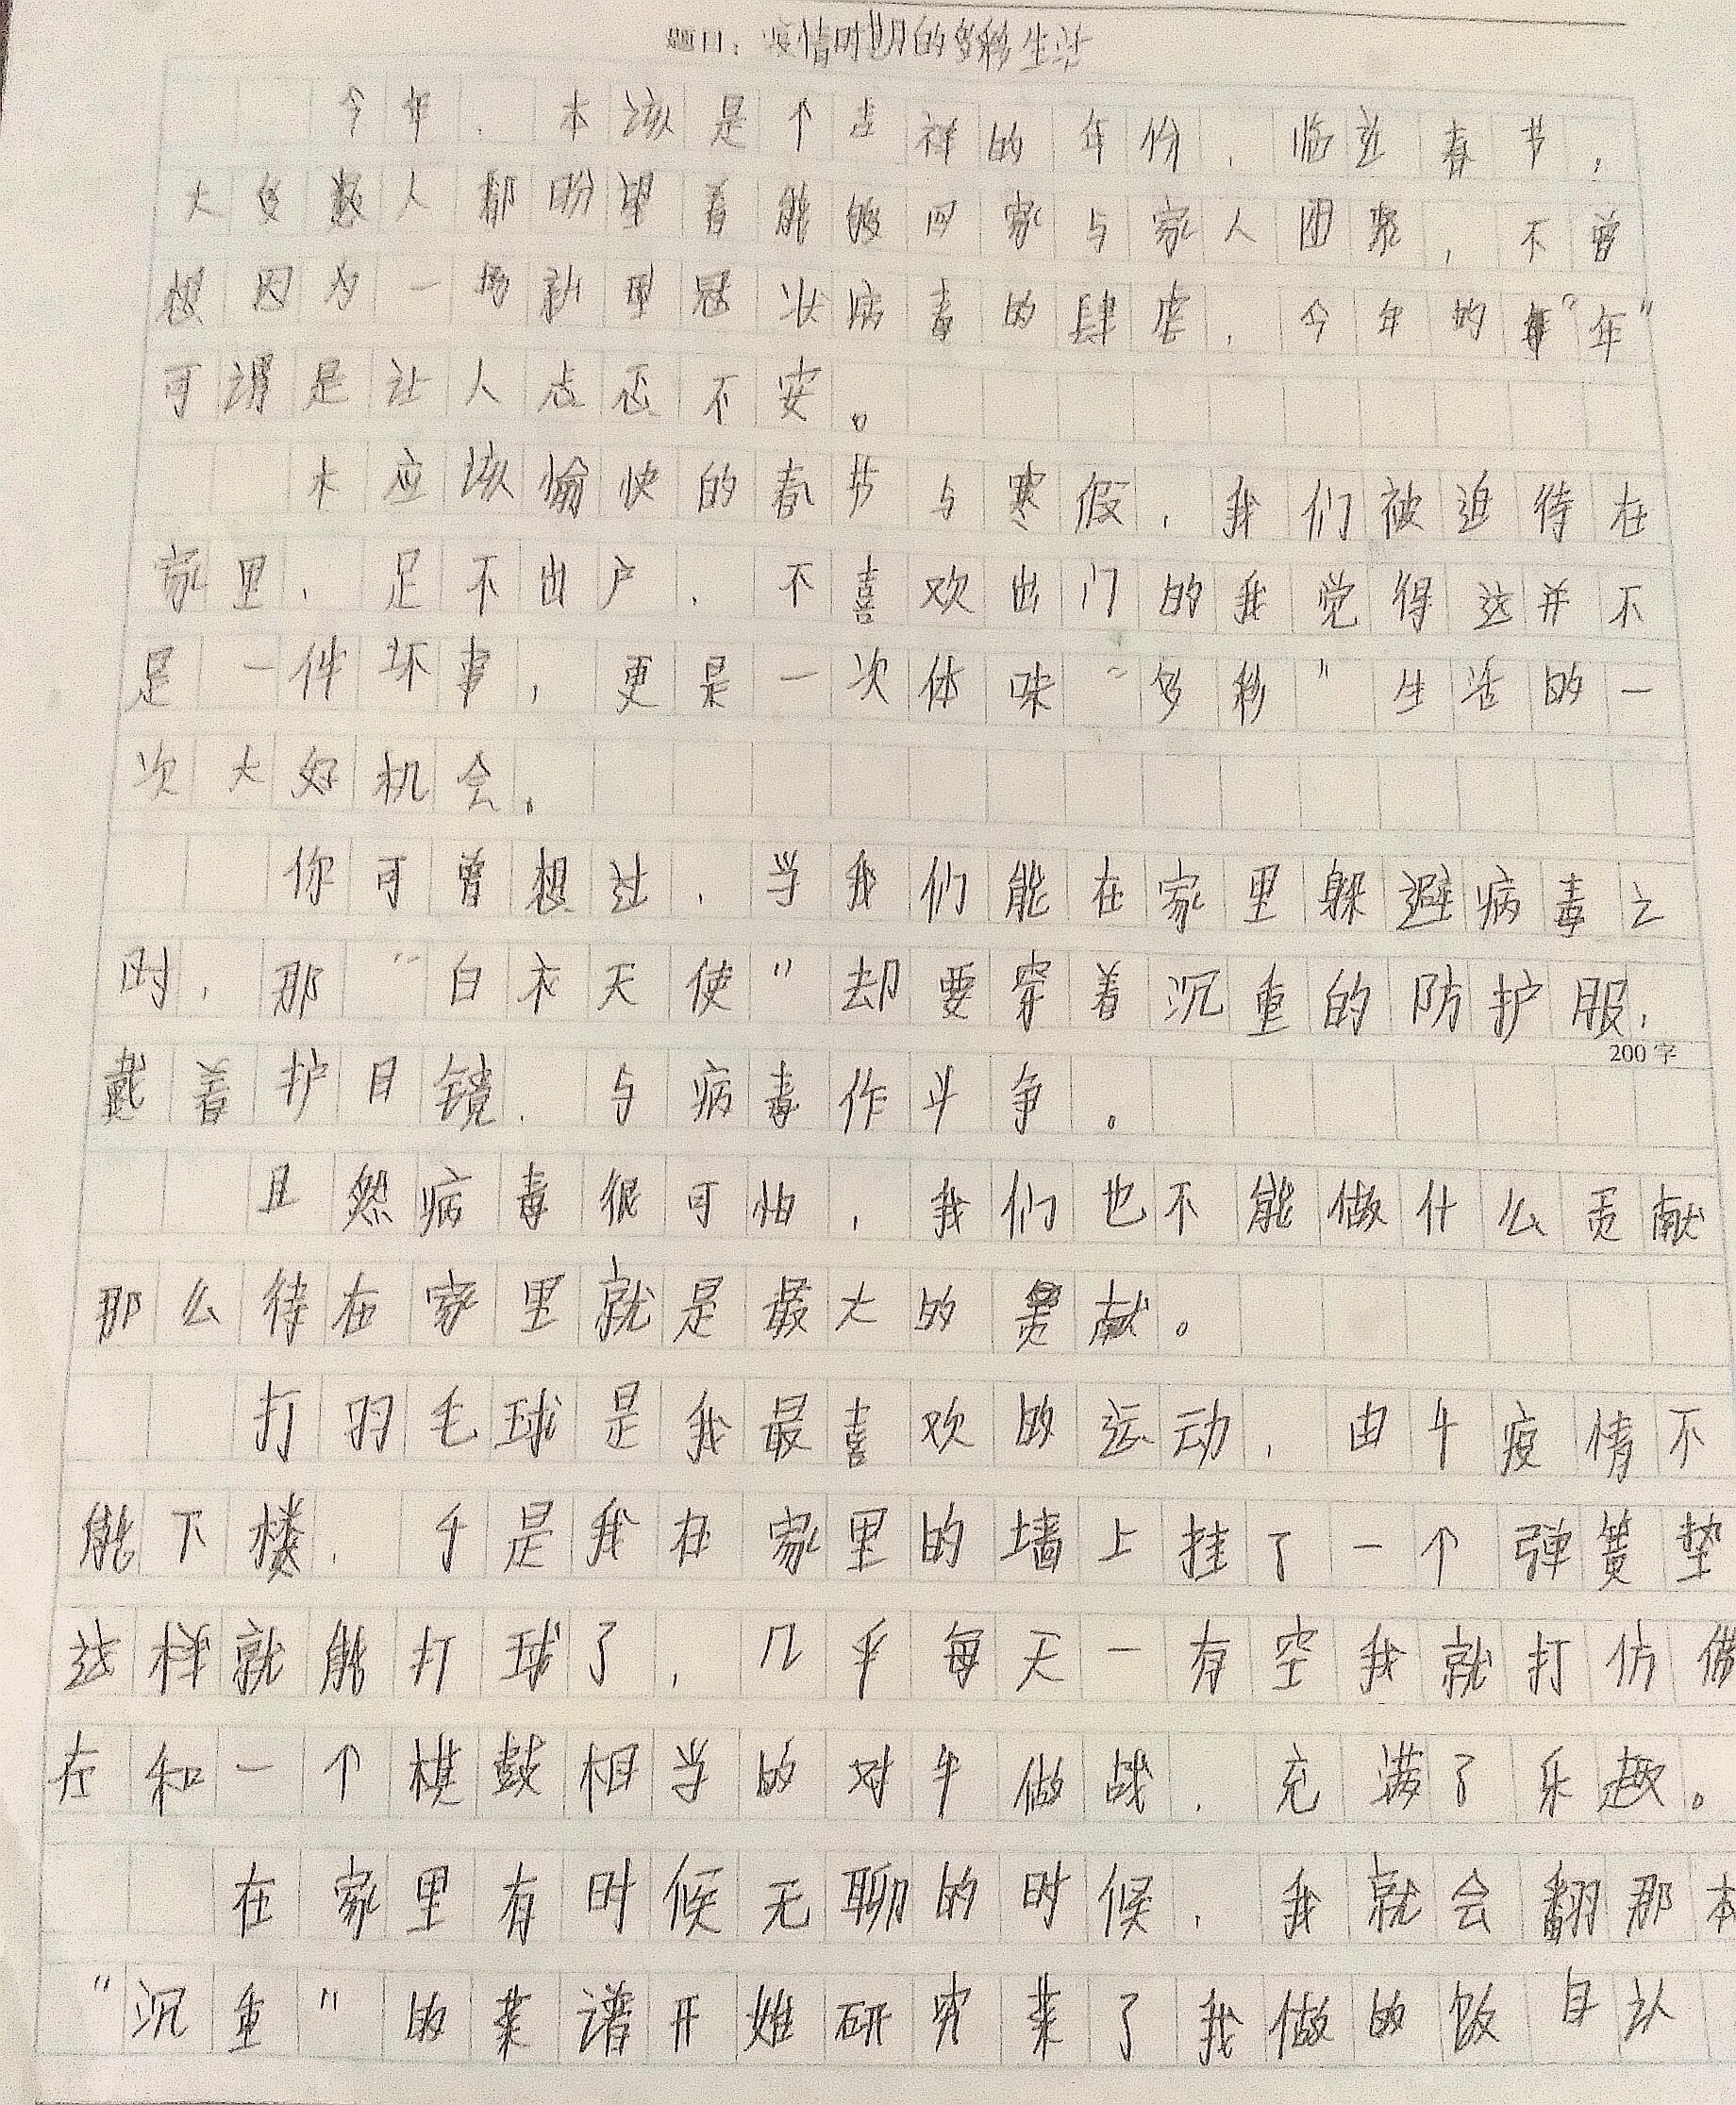 题目：疫情时期的多彩生活
今年，本该是个吉祥的年份，临近春节，
大多数人都盼望着能够回家与家人团聚，不曾
想因为一场新型冠状病毒的肆虐，今年的“年”
可谓是让人忐忑不安。
本应该愉快的春节与寒假，我们被迫待在
家里，足不出户，不喜欢出门的我觉得这并不
是一件坏事，更是一次体味“多彩”生活的一
次大好机会。
你可曾想过，当我们能在家里躲避病毒之
时，那“白衣天使”却要穿着沉重的防护服，
200字
戴着护目镜，与病毒作斗争。
且然病毒很可怕，我们也不能做什么贡献
那么待在家里就是最大的贡献。
打羽毛球是我最喜欢的运动，由于疫情不
能下楼，于是我在家里的墙上挂了一个弹簧垫
这样就能打球了，几乎每天一有空我就打仿佛
在和一个棋鼓相当的对手做战，充满了乐趣。
在家里有时候无聊的时候，我就会翻那本
“沉重”的菜谱开始研究菜了我做的饭自认